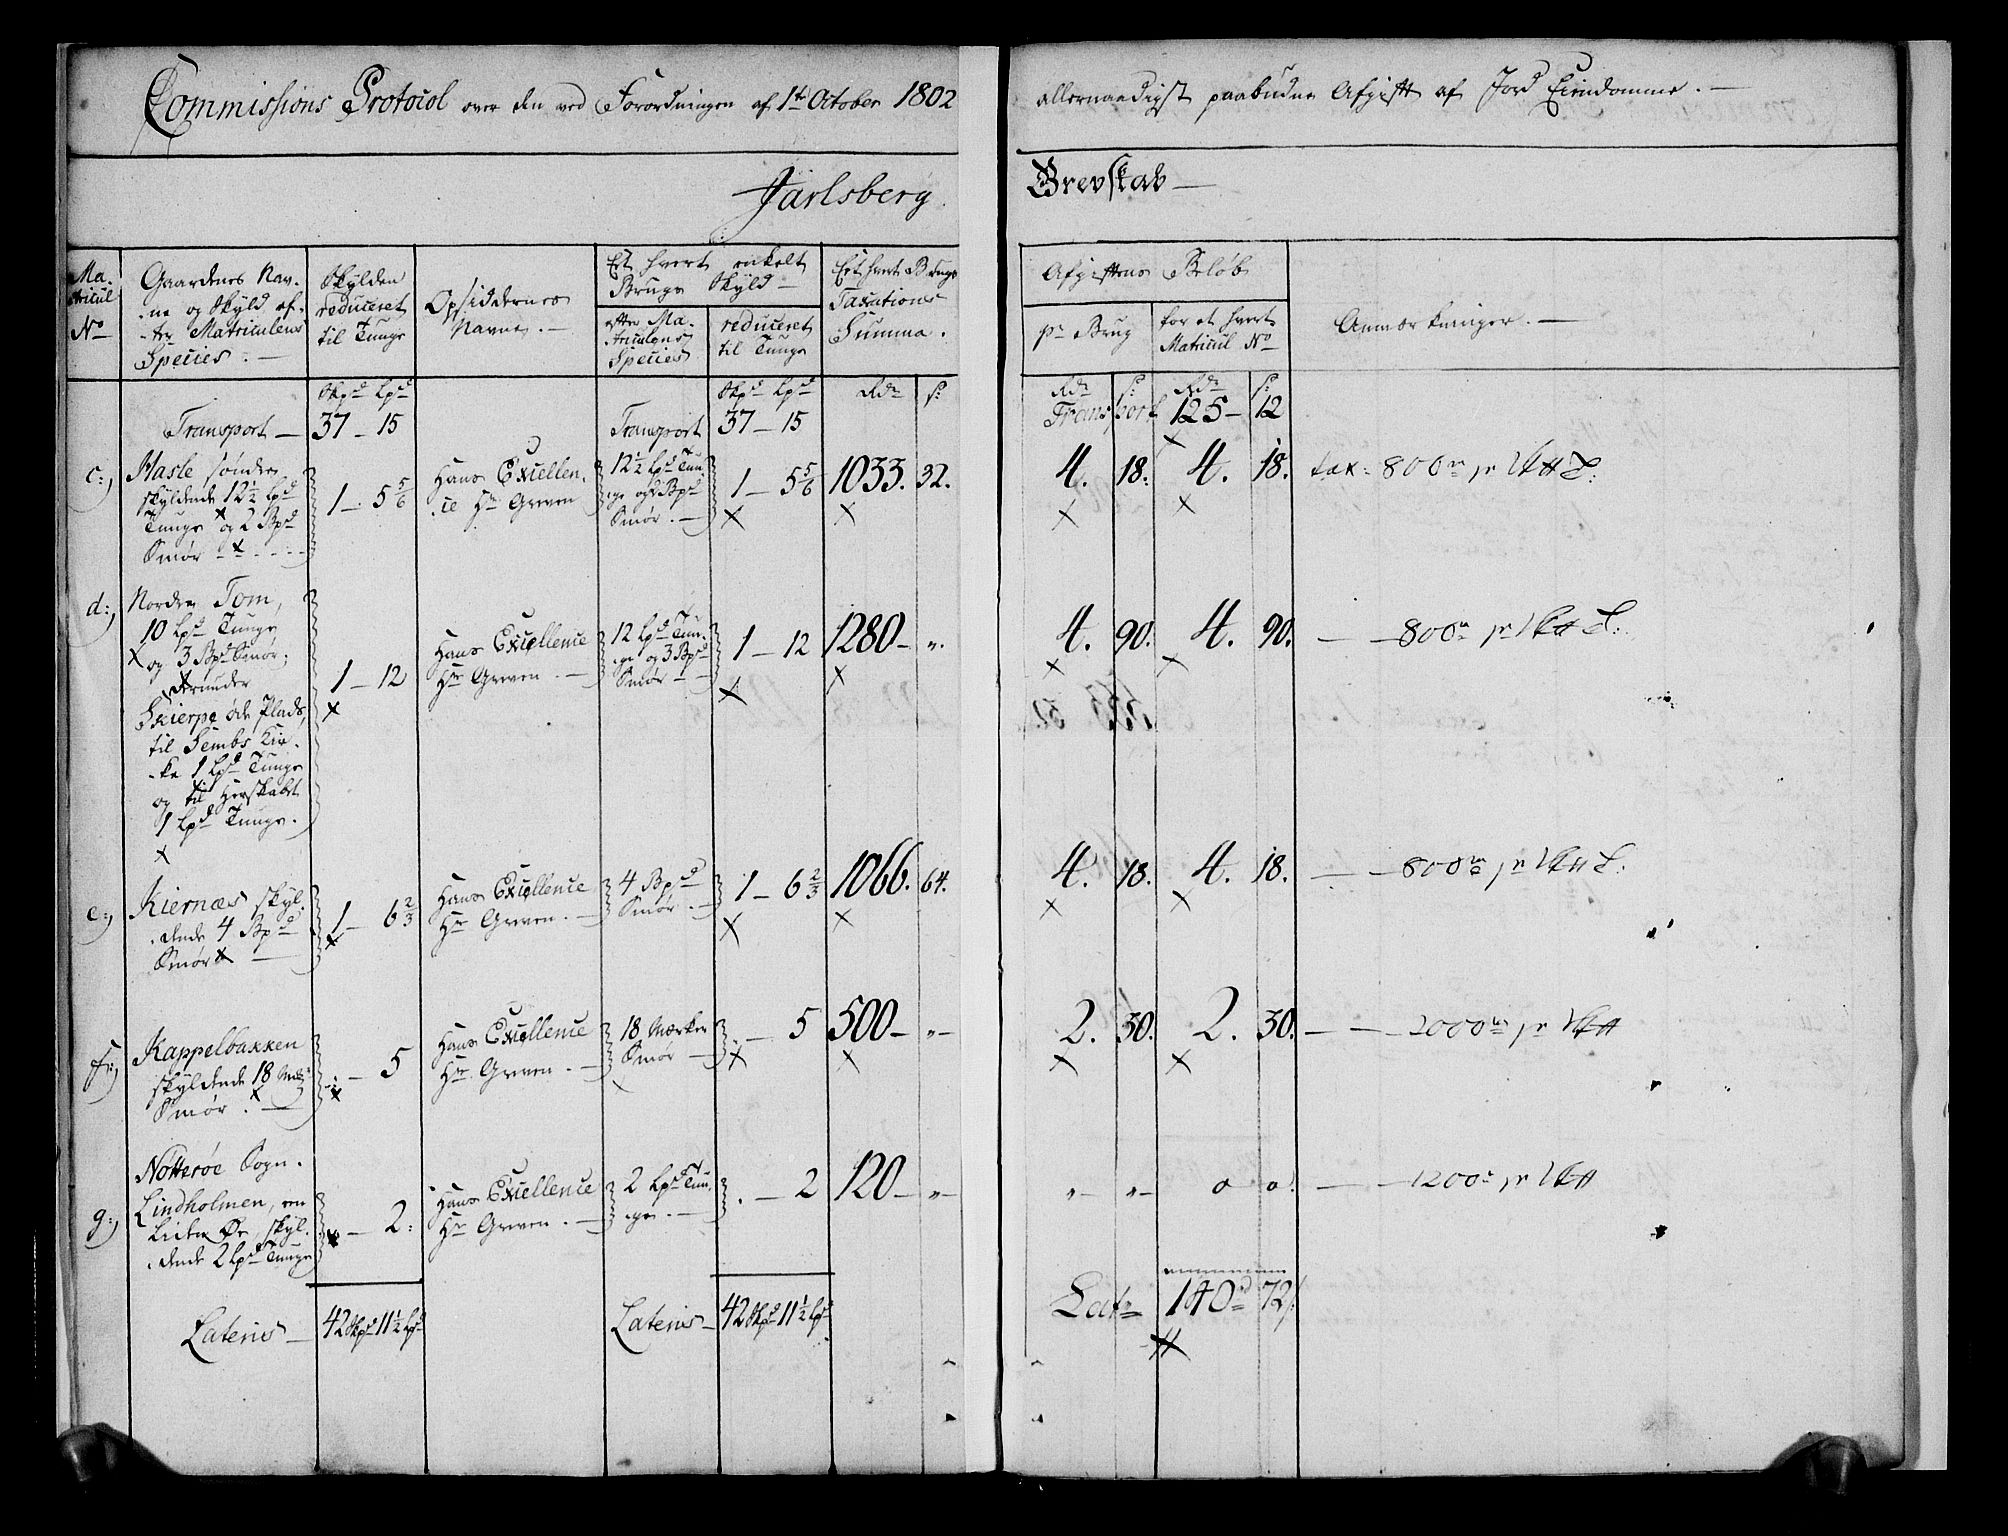 Commissions Protocol over den ved Forordningen af 1te October 1802
allernaadigst paabudne Afgift af Jord Eiendomme. —
Jarlsberg
Grevskab —
Ma-
tricul
No
Gaardenes Nav-
ne og Skyld ef-
ter Matriculens
Species. —
Skylden
reduceret
til Tunge
Opsiddernes
Navne. —
Et hvert enkelt
Brugs Skyld —
efter Ma-
triculens
Species
reduceret
til Tunge
Eet hvert Brugs
Taxations
Summa.
Afgiftens Beløb
pr Brug
for et hvert
Matricul No
Anmærkninger. —
Skpd Lpd
Skpd Lpd
Rdr
s:
Rdr
s:
Rdr
s:
Transport —
37 — 15
Transport
37 — 15
Transport
125 — 12
c:)
Hasle søndre
skyldende 12½ Lpd
Tunge og 2 Bpd
Smør
1 — 5 5/6
Hans Excellen-
ce Hr Greven
12½ Lpd Tun-
ge og 2 Bpd
Smør. —
1 — 5 5/6
1033. 32.
4. 18. 4. 18.
tax: 800
d:)
Nordre Tom,
10 Lpd Tunge
og 3 Bpd Smør;
derunder
Skierpe øde Plads,
til Sembs Kir-
ke 1 Lpd Tunge
og til Herskabet
1 Lpd Tunge.
1 — 12
Hans Excellence
Hr Greven. —
12 Lpd Tun-
ge og 3 Bpd
Smør —
1 — 12
1280 — ".
4. 90. 4. 90.
— — 800
e:)
Kiernæs skyl-
dende 4 Bpd
Smør —
1 — 6 2/3
Hans Excellence
Hr Greven. —
4 Bpd
Smør. —
1 — 6 2/3
1066. 64.
4. 18. 4. 18.
— — 800
f:)
Kappelbakken
skyldende 18 Mkr
Smør. —
" — 5
Hans Excellence
Hr Greven. —
18 Mærker
Smør —
. — 5
500 — " —
2. 30. 2. 30.
— — 2000
g:)
Nøtterøe Sogn.
Lindholmen, en
Liden Øe, skyl-
dende 2 Lpd Tunge
— 2:
Hans Excellence
Hr Greven. —
2 Lpd Tun-
ge. —
. — 2
120 — " —
" — " — 0 0.
— — 1200
Lateris —
42 Skpd 11½ Lpd
Lateris —
42 Skpd 11½ Lpd
Lat
140 72